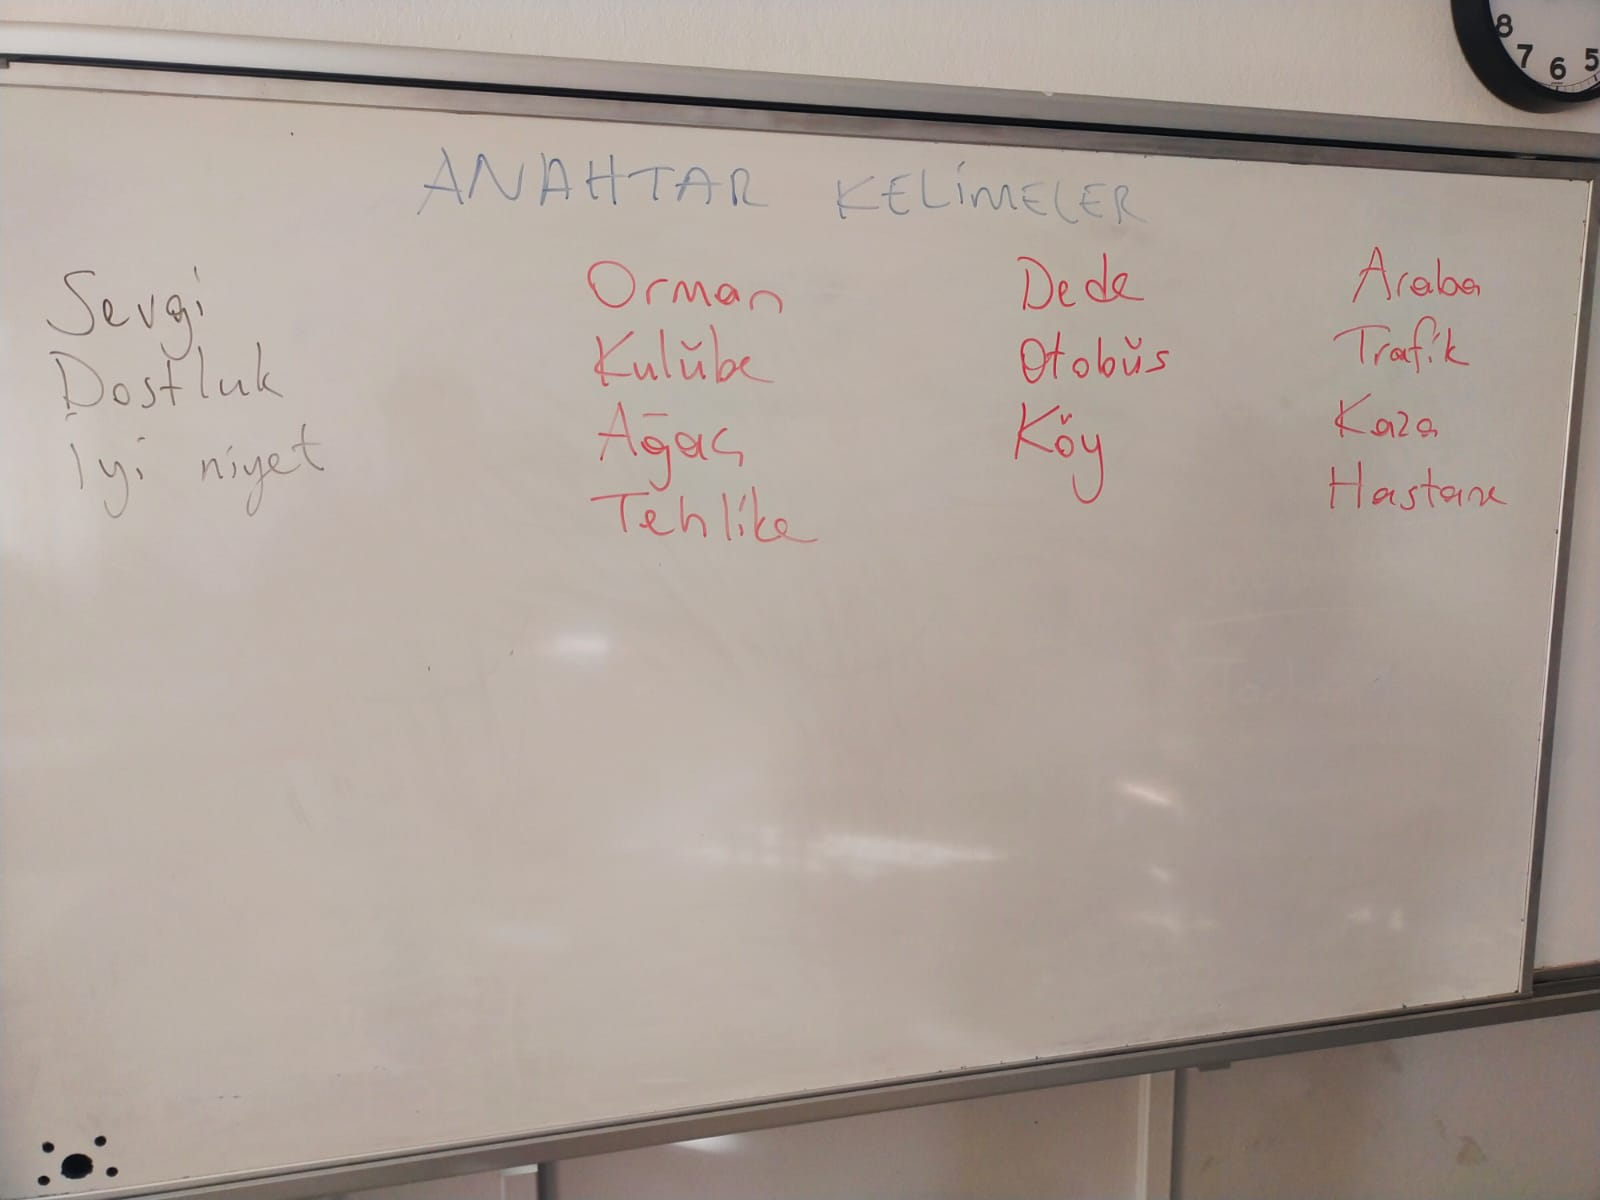 8
7
6
5
ANAHTAR KELİMELER
Sevgi
Dostluk
İyi niyet
Orman
Kulübe
Ağaç
Tehlike
Dede
Otobüs
Köy
Araba
Trafik
Kaza
Hastane